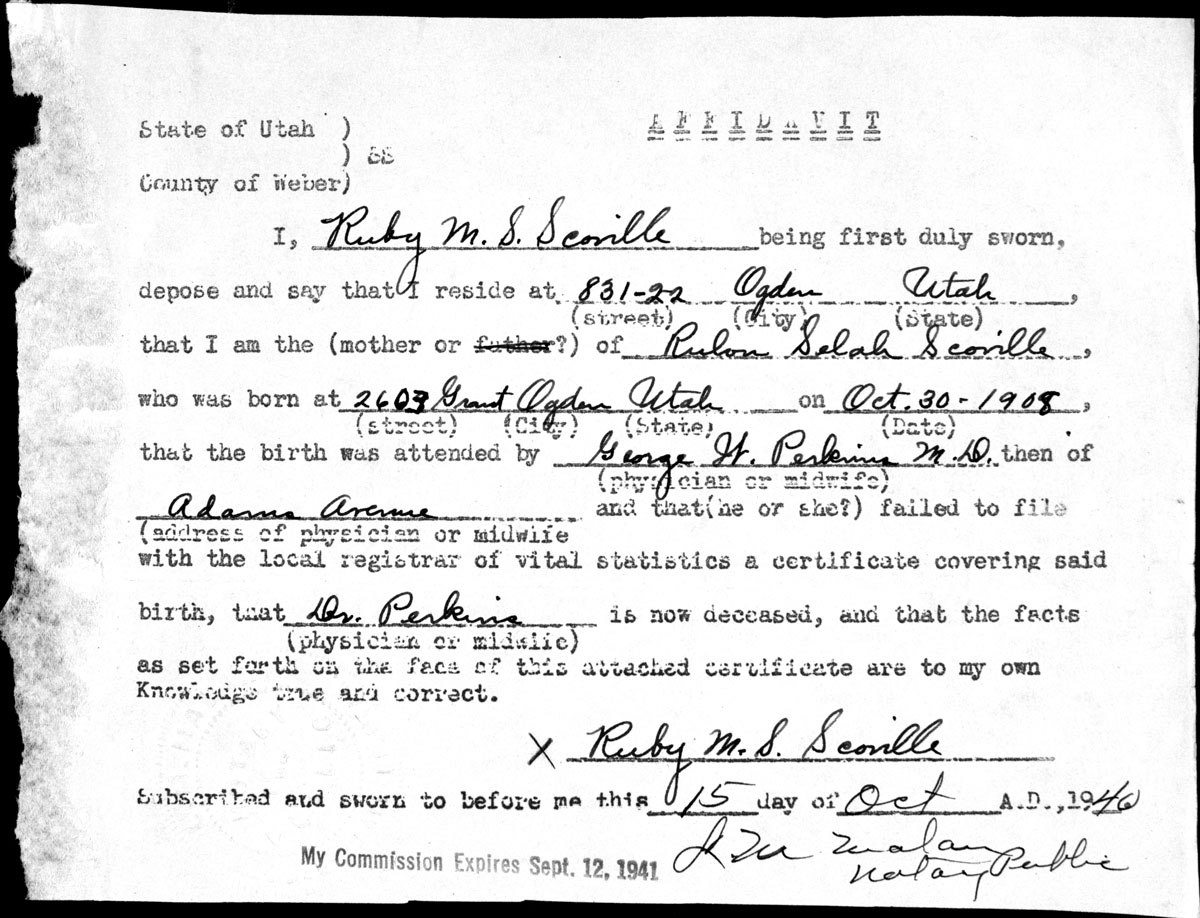 AFFIDAVIT
State of Utah )
) SS
County of Weber)
I, Ruby M. S. Scoville being first duly sworn,
depose and say that I reside at 831-22 Ogden Utah ,
(street) (City) (State)
that I am the (mother or father?) of Rulon Selah Scoville ,
who was born at 2603 Grant Ogden Utah on Oct. 30-1908 ,
(street) (City) (State) (Date)
that the birth was attended by George W. Perkins M.D. then of
(physician or midwife)
Adams Avenue and that(he or she?) failed to file
(address of physician or midwife
with the local registrar of vital statistics a certificate covering said
birth, that Dr. Perkins is now deceased, and that the facts
(physician or midwife)
as set forth on the face of this attached certificate are to my own
Knowledge true and correct.
X Ruby M. S. Scoville
Subscribed and sworn to before me this 15 day of Oct A.D.,1940
My Commission Expires Sept. 12, 1941
Malan
Notary Public